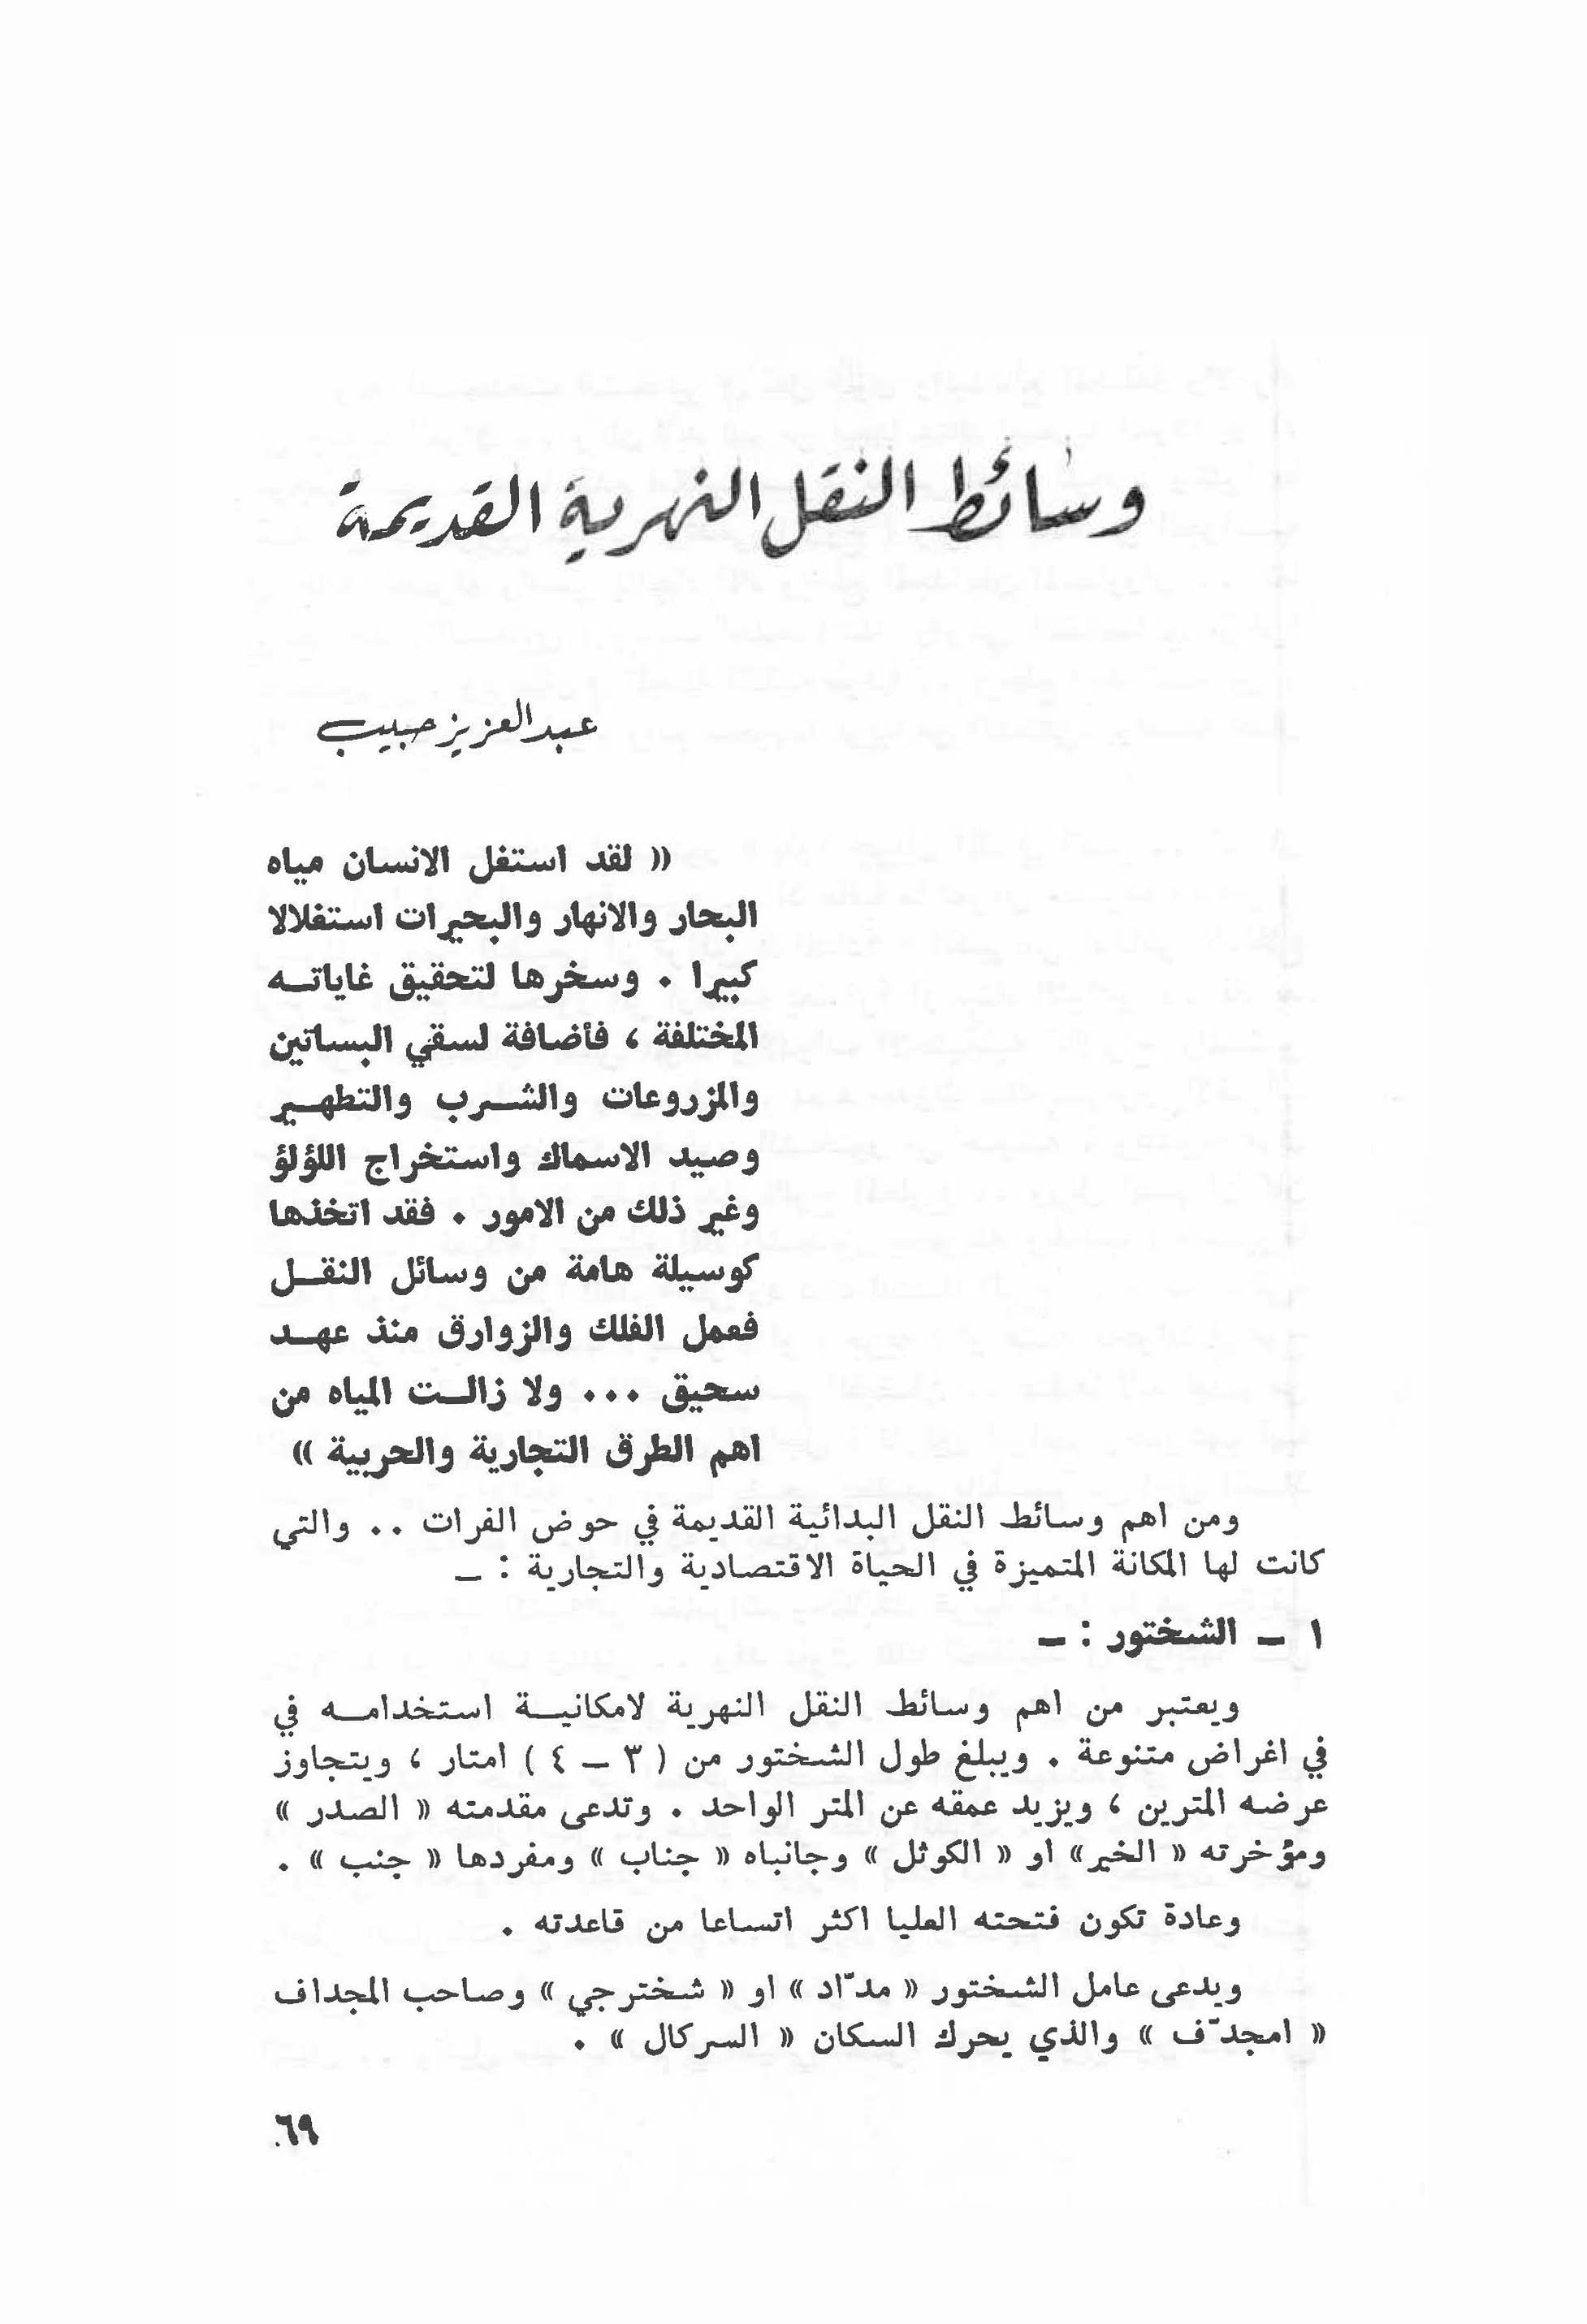 وسائط النقل النهرية القديمة
عبدالعزيز حبيب
« لقد استغل الانسان مياه
البحار والانهار والبحيرات استغلالا
كبيرا . وسخرها لتحقيق غاياتـه
المختلفة ، فأضافة لسقي البساتين
والمزروعات والشـرب والتطهـير
وصيد الاسماك واستخراج اللؤلؤ
وغير ذلك من الامور . فقد اتخذها
كوسيلة هامة من وسائل النقـل
فعمل الفلك والزوارق منذ عهـد
سحيق ... ولا زالـت المياه من
اهم الطرق التجارية والحربية »
ومن اهم وسائط النقل البدائية القديمة في حوض الفرات .. والتي
كانت لها المكانة المتميزة في الحياة الاقتصادية والتجارية : ـ
١ ـ الشختور : ـ
ويعتبر من اهم وسائط النقل النهرية لامكانيـة استخدامـه في
في اغراض متنوعة . ويبلغ طول الشختور من ( ٣ ـ ٤ ) امتار ، ويتجاوز
عرضه المترين ، ويزيد عمقه عن المتر الواحد . وتدعى مقدمته « الصدر »
ومؤخرته « الخير» او « الكوثل » وجانباه « جناب » ومفردها « جنب » .
وعادة تكون فتحته العليا اكثر اتساعا من قاعدته .
ويدعى عامل الشختور « مدّاد » او « شخترجي » وصاحب المجداف
« امجدّف » والذي يحرك السكان « السركال » .
٦٩